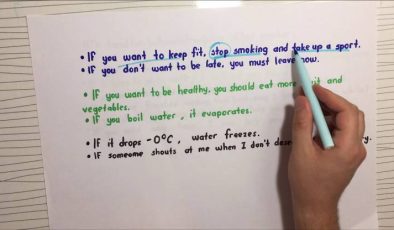 • If you want to keep fit, stop smoking and take up a sport.
• If you don't want to be late, you must leave now.
• If you want to be healthy, you should eat more and
vegetables.
• If you boil water, it evaporates.
• If it drops -0°C, water freezes.
• If someone shouts at me when I don't